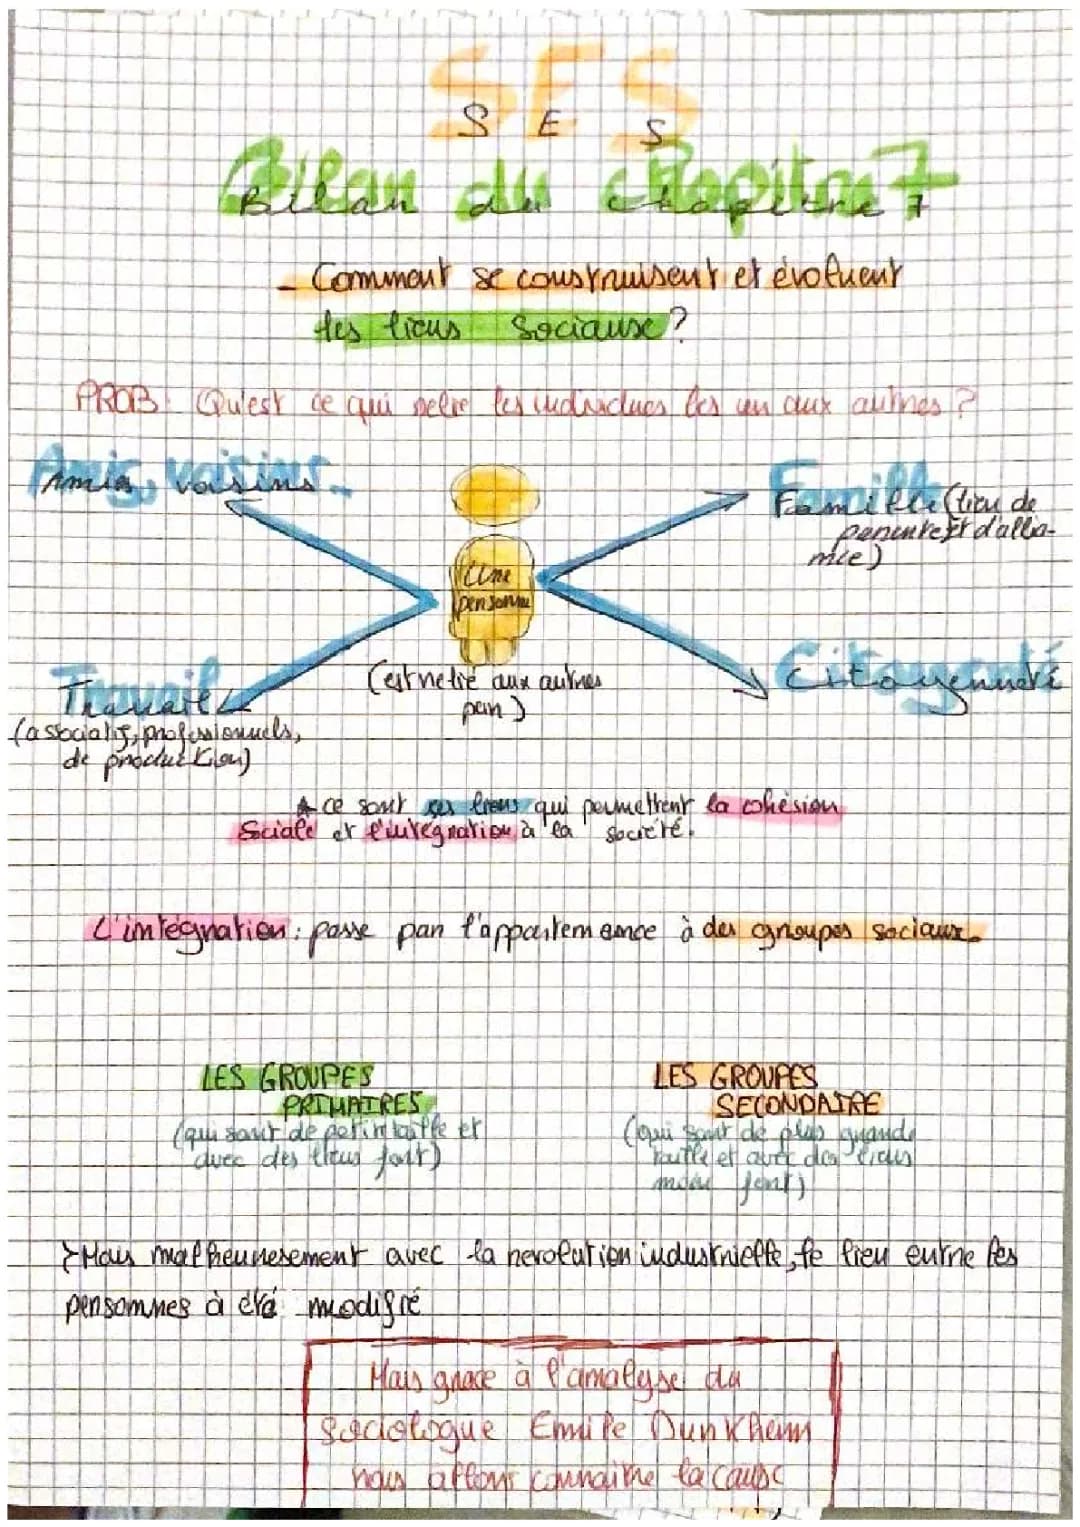 SES
S E S
Bilan du chapitre 7
Bilan du chapitre 7
- Comment se construisent et évoluent
les liens Sociause ?
PROB: Qu'est ce qui relie les individues les un aux autres ?
Amis, voisins
Amis, voisins
Famille
Famille (lien de
parenté et d'allia-
nce)
Une
personne
Travail
Travail
(associatif, professionnels,
de production)
(est relié aux autres
par)
Citoyenneté
Citoyenneté
ce sont ses liens qui permettent la cohésion
Sociale et l'intégration à la société.
L'intégration : passe par l'appartemance à des groupes sociaux.
LES GROUPES
PRIMAIRES
(qui sont de petit taille et
avec des liens fort)
LES GROUPES
SECONDAIRE
(qui sont de plus grande
taille et avec des liens
moins fort)
> Mais malheuresement avec la revolution industrielle, le lien entre les
personnes à été modifié
Mais grace à l'analyse du
Sociologue Emile Durkheim
nous allons connaitre la cause